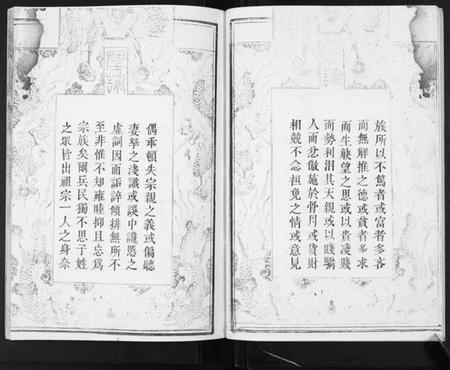 聖諭
族所以不篤者或富者多吝
而無解推之德或貧者多求
而生觖望之思或以貴凌賤
而勢利汨其天親或以賤驕
人而忿傲施於骨肉或貨財
相競不念袒免之情或意見
聖諭
偶乖頓失宗親之義或偏聽
妻孥之淺識或誤中讒慝之
虛詞因而詬誶傾排無所不
至非惟不知雍睦抑且忘為
宗族矣爾兵民獨不思子姓
之眾皆出祖宗一人之身奈